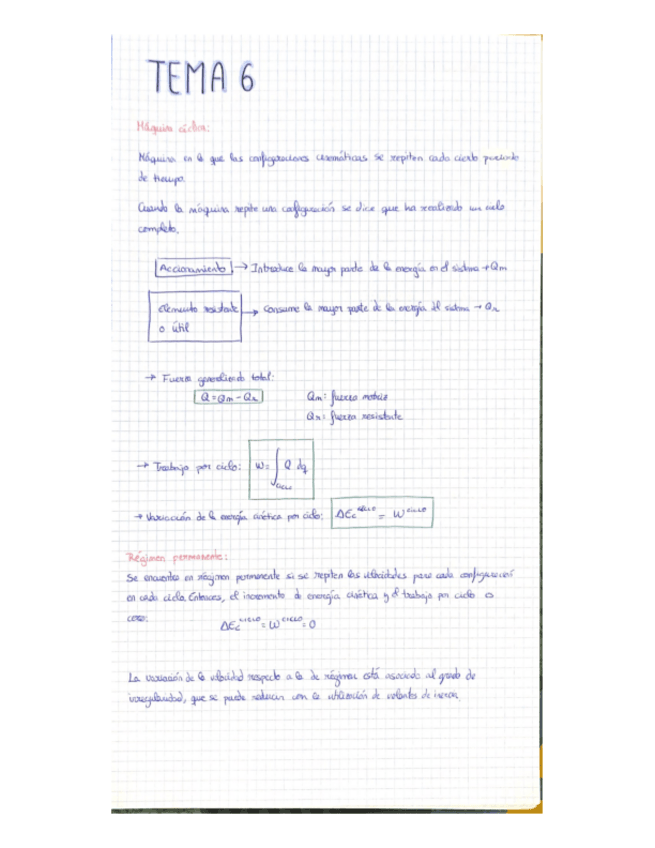 TEMA 6
Máquina cíclica:
Máquina en la que las configuraciones cinemáticas se repiten cada cierto periodo
de tiempo.
Cuando la máquina repite una configuración se dice que ha realizado un ciclo
completo.
Accionamiento → Introduce la mayor parte de la energía en el sistema → Qm
elemento resistente → Consume la mayor parte de la energía del sistema → Qr
o útil
→ Fuerza generalizada total:
Q = Qm - Qr Qm: fuerza motriz
Qr: fuerza resistente
→ Trabajo por ciclo: W = ∫ciclo Q dq
→ Variación de la energía cinética por ciclo: ΔEc^ciclo = W^ciclo
Régimen permanente:
Se encuentra en régimen permanente si se repiten las velocidades para cada configuración
en cada ciclo. Entonces, el incremento de energía cinética y el trabajo por ciclo es
cero:
ΔEc^ciclo = W^ciclo = 0
La variación de la velocidad respecto a la de régimen está asociada al grado de
irregularidad, que se puede reducir con la utilización de volantes de inercia.